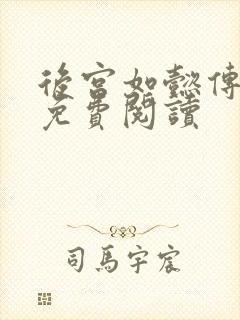 後宮如懿傳
免費閱讀
司馬宇宸